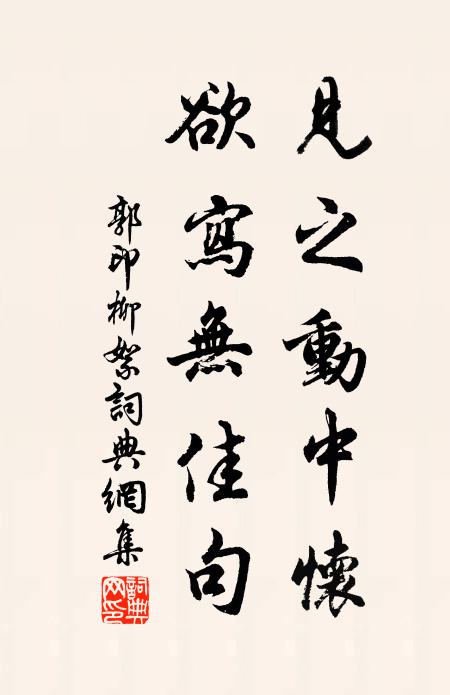 見之動中懷
欲寫無佳句
郭印柳絮詞典網集
詞典
网印